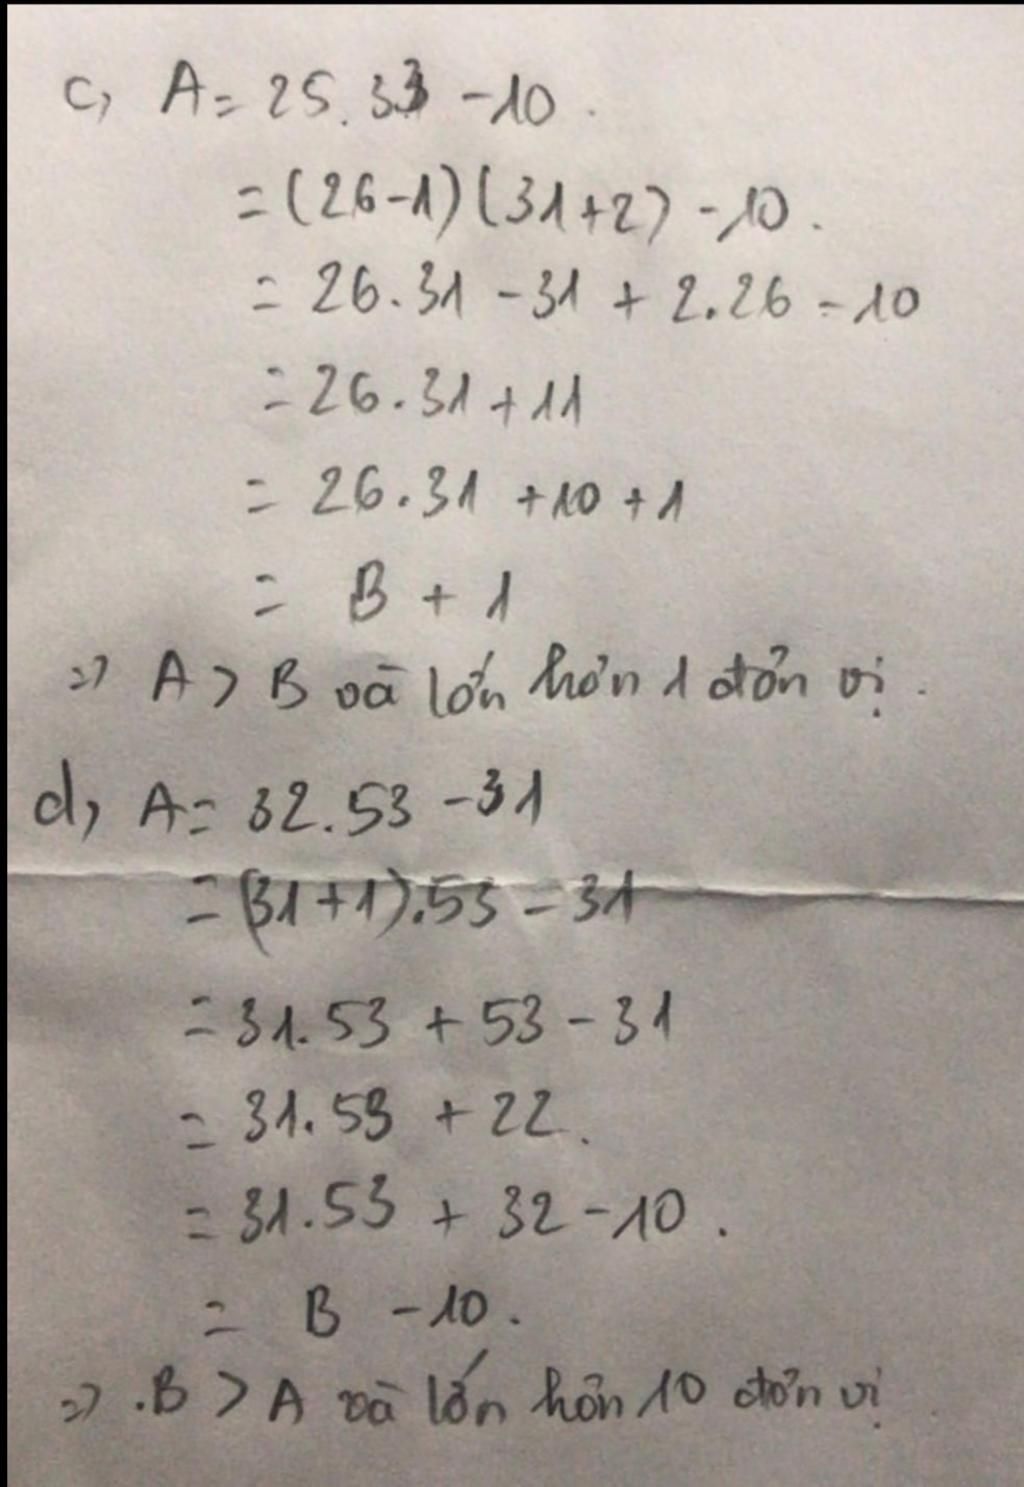 c, A = 25.33 - 10.
= (26-1)(31+2) - 10.
= 26.31 - 31 + 2.26 - 10
= 26.31 + 11
= 26.31 + 10 + 1
= B + 1
=> A > B và lớn hơn 1 đơn vị.
d, A = 32.53 - 31
= (31+1).53 - 31
= 31.53 + 53 - 31
= 31.53 + 22.
= 31.53 + 32 - 10.
= B - 10.
=> .B > A và lớn hơn 10 đơn vị